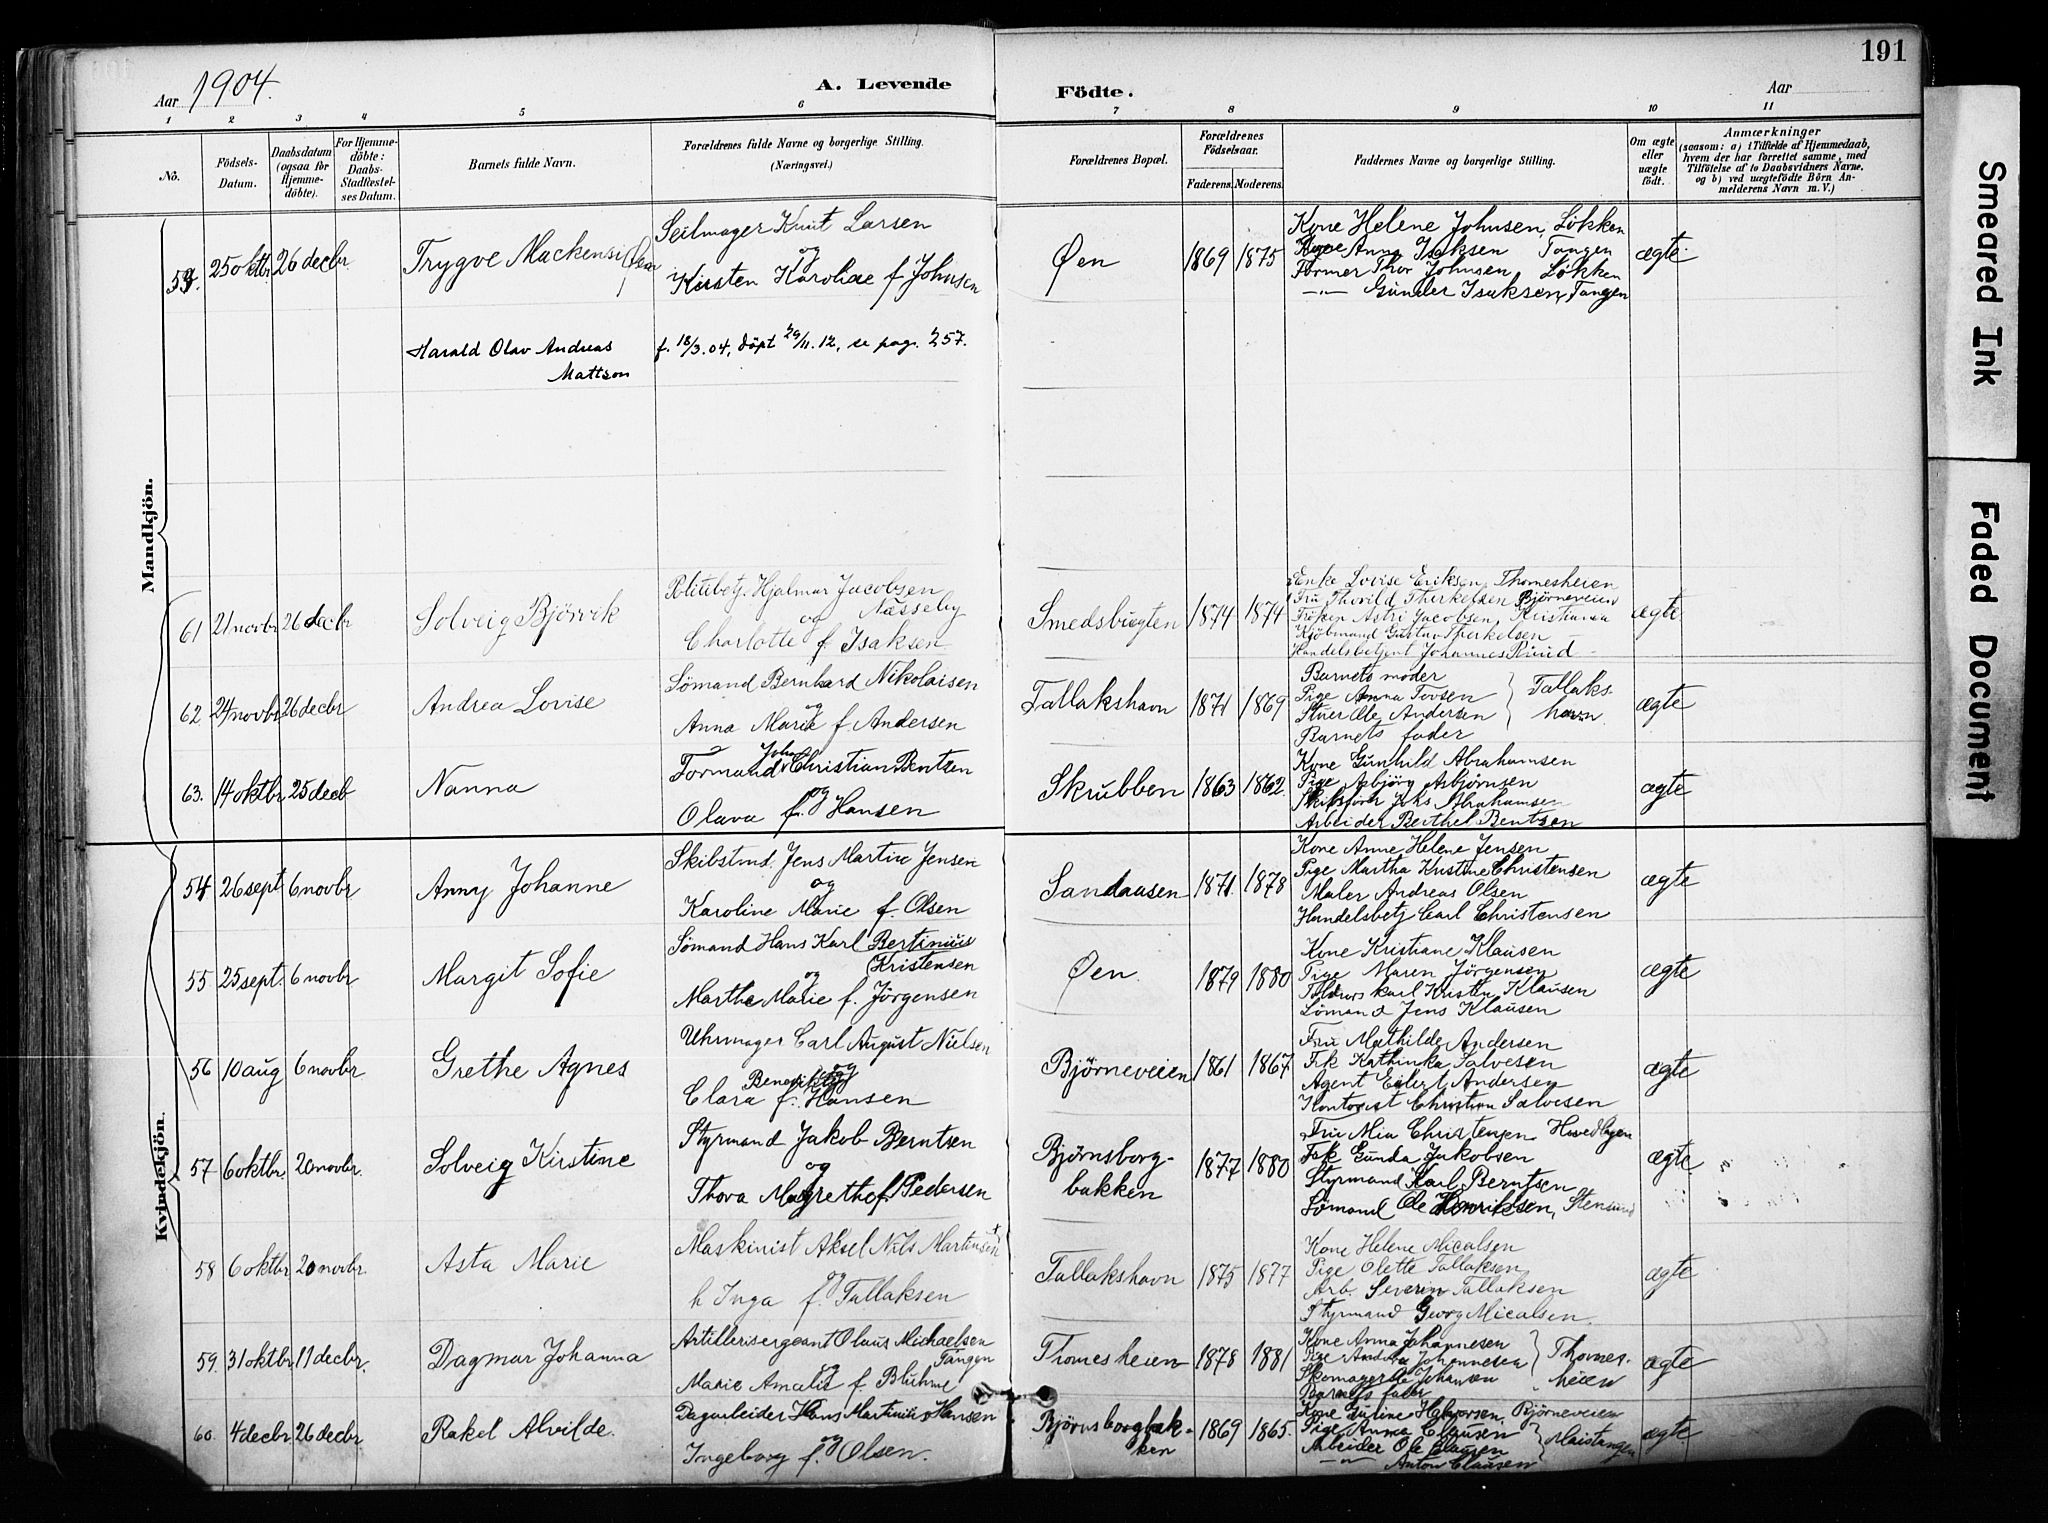 191
Aar 1904.
A. Levende Födte.
Aar
1 2 3 4 5 6 7 8 9 10 11
No.
Födsels-
Datum.
Daabsdatum
(ogsaa for
Hjemme-
döbte).
For Hjemme-
döbte:
Daabs-
Stadfæstel-
ses Datum.
Barnets fulde Navn.
Forældrenes fulde Navne og borgerlige Stilling.
(Næringsvei.)
Forældrenes Bopæl.
Forældrenes
Födselsaar.
Faderens. Moderens.
Faddernes Navne og borgerlige Stilling.
Om ægte
eller
uægte
födt.
Anmærkninger
(saasom: a) i Tilfælde af Hjemmedaab,
hvem der har forrettet samme, med
Tilföielse af to Daabsvidners Navne,
og b) ved uægtefödte Börn An-
melderens Navn m. V.)
Mandkjön.
25 oktbr 26 decbr Trygve Mackensi
Seilmager Knut Larsen
og
Kirsten Karoline f. Johnsen
Øen 1869 1875
Kone Helene Johnsen, Løkken
Anna Isaksen Tangen
Former Thor Johnsen Løkken
—"— Gunder Isaksen, Tangen
ægte.
Harald Olav Andreas
Mattson
f. 18/3.04, döpt 29/11.12, se pag. 257.
61 21 novbr 26 decbr Solveig Björvik
Politibetj. Hjalmar Jacobsen
Næsseby
og
Charlotte f. Isaksen
Smedsbugten 1874 1874
Enke Lovise Eriksen, Thomesheien
Fru Thorild Therkelsen Bjørneveien
Frøken Astri Jacobsen, Kristiania
Kjöbmand Gustav Therkelsen
Handelsbetjent Johannes Ruud
ægte
62. 24 novbr 26 decbr Andrea Lovise
Sömand Bernhard Nikolaisen
og
Anna Marie f. Andersen
Tallakshavn 1871 1869
Barnets moder
Pige Anna Tovsen
Ole Andersen
Barnets fader
Tallaks-
havn
ægte
63. 14 oktbr 25 decb Nanna
Formand Johan Christian Bentsen
og
Olava f. Hansen
Skrubben 1863 1862.
Kone Gunhild Abrahamsen
Pige Asbjörg Asbjörnsen
Skibsförer Johs Abrahamsen
Arbeider Berthel Bentsen
ægte
Kvindekjön.
54 26 sept. 6 novbr Anny Johanne
Skibstmd. Jens Martin Jensen
og
Karoline Marie f. Olsen
Sandaasen 1871 1878
Kone Anne Helene Jensen
Pige Martha Kristine Christensen
Maler Andreas Olsen
Handelsbetj Carl Christensen
ægte
55 25 sept. 6 novbr Margit Sofie
Sömand Hans Karl Bertinius
Kristensen
og
Marthe Marie f. Jörgensen
Øen. 1879 1880
Kone Kristiane Klausen
Pige Maren Jörgensen
Karl Kristen Klausen
Sömand Jens Klausen
ægte
56 10 aug 6 novbr Grethe Agnes
Uhrmager Carl August Nielsen
og
Clara Benedikte f. Hansen
Bjørneveien 1861 1867
Fru Mathilde Andersen
Frk Kathinka Salvesen
Agent Eilert Andersen
Kontorist Christian Salvesen
ægte
57 6 oktbr. 20 novbr. Solveig Kirstine
Styrmand Jakob Berntsen
og
Thora Magrethe f. Pedersen
Bjørnsborg-
bakken
1877 1880
Fru Mia Christensen
Frk Gunda Jakobsen
Styrmand Karl Berntsen
Sömand Ole Henriksen, Stensund
ægte
58 6 oktbr 20 novbr. Asta Marie
Maskinist Aksel Nils Martinsen
og
h Inga f. Tallaksen
Tallakshavn 1875 1877
Kone Helene Micalsen
Pige Olette Tallaksen
Arb. Severin Tallaksen
Styrmand Georg Micalsen.
ægte
59. 31 oktbr 11 decbr. Dagmar Johanna
Artillerisergeant Olaus Michaelsen
Tangen
og
Marie Amalie f. Bluhme
Thomesheien 1878 1881
Kone Anna Johannesen
Pige Andrea Johannesen
Skomager Ole Johansen
Barnets fader
Thomes-
heien
ægte
60. 4 decbr 26 decbr Rakel Alvilde.
Dagarbeider Hans Martinius Hansen
og
Ingeborg f. Olsen.
Bjørnsborgbak-
ken
1869 1865.
Kone Guline Halvorsen, Bjørneveien
Pige Anna Clausen
Arbeider Ole Clausen
—"— Anton Clausen
ægte
Smeared Ink
Faded Document